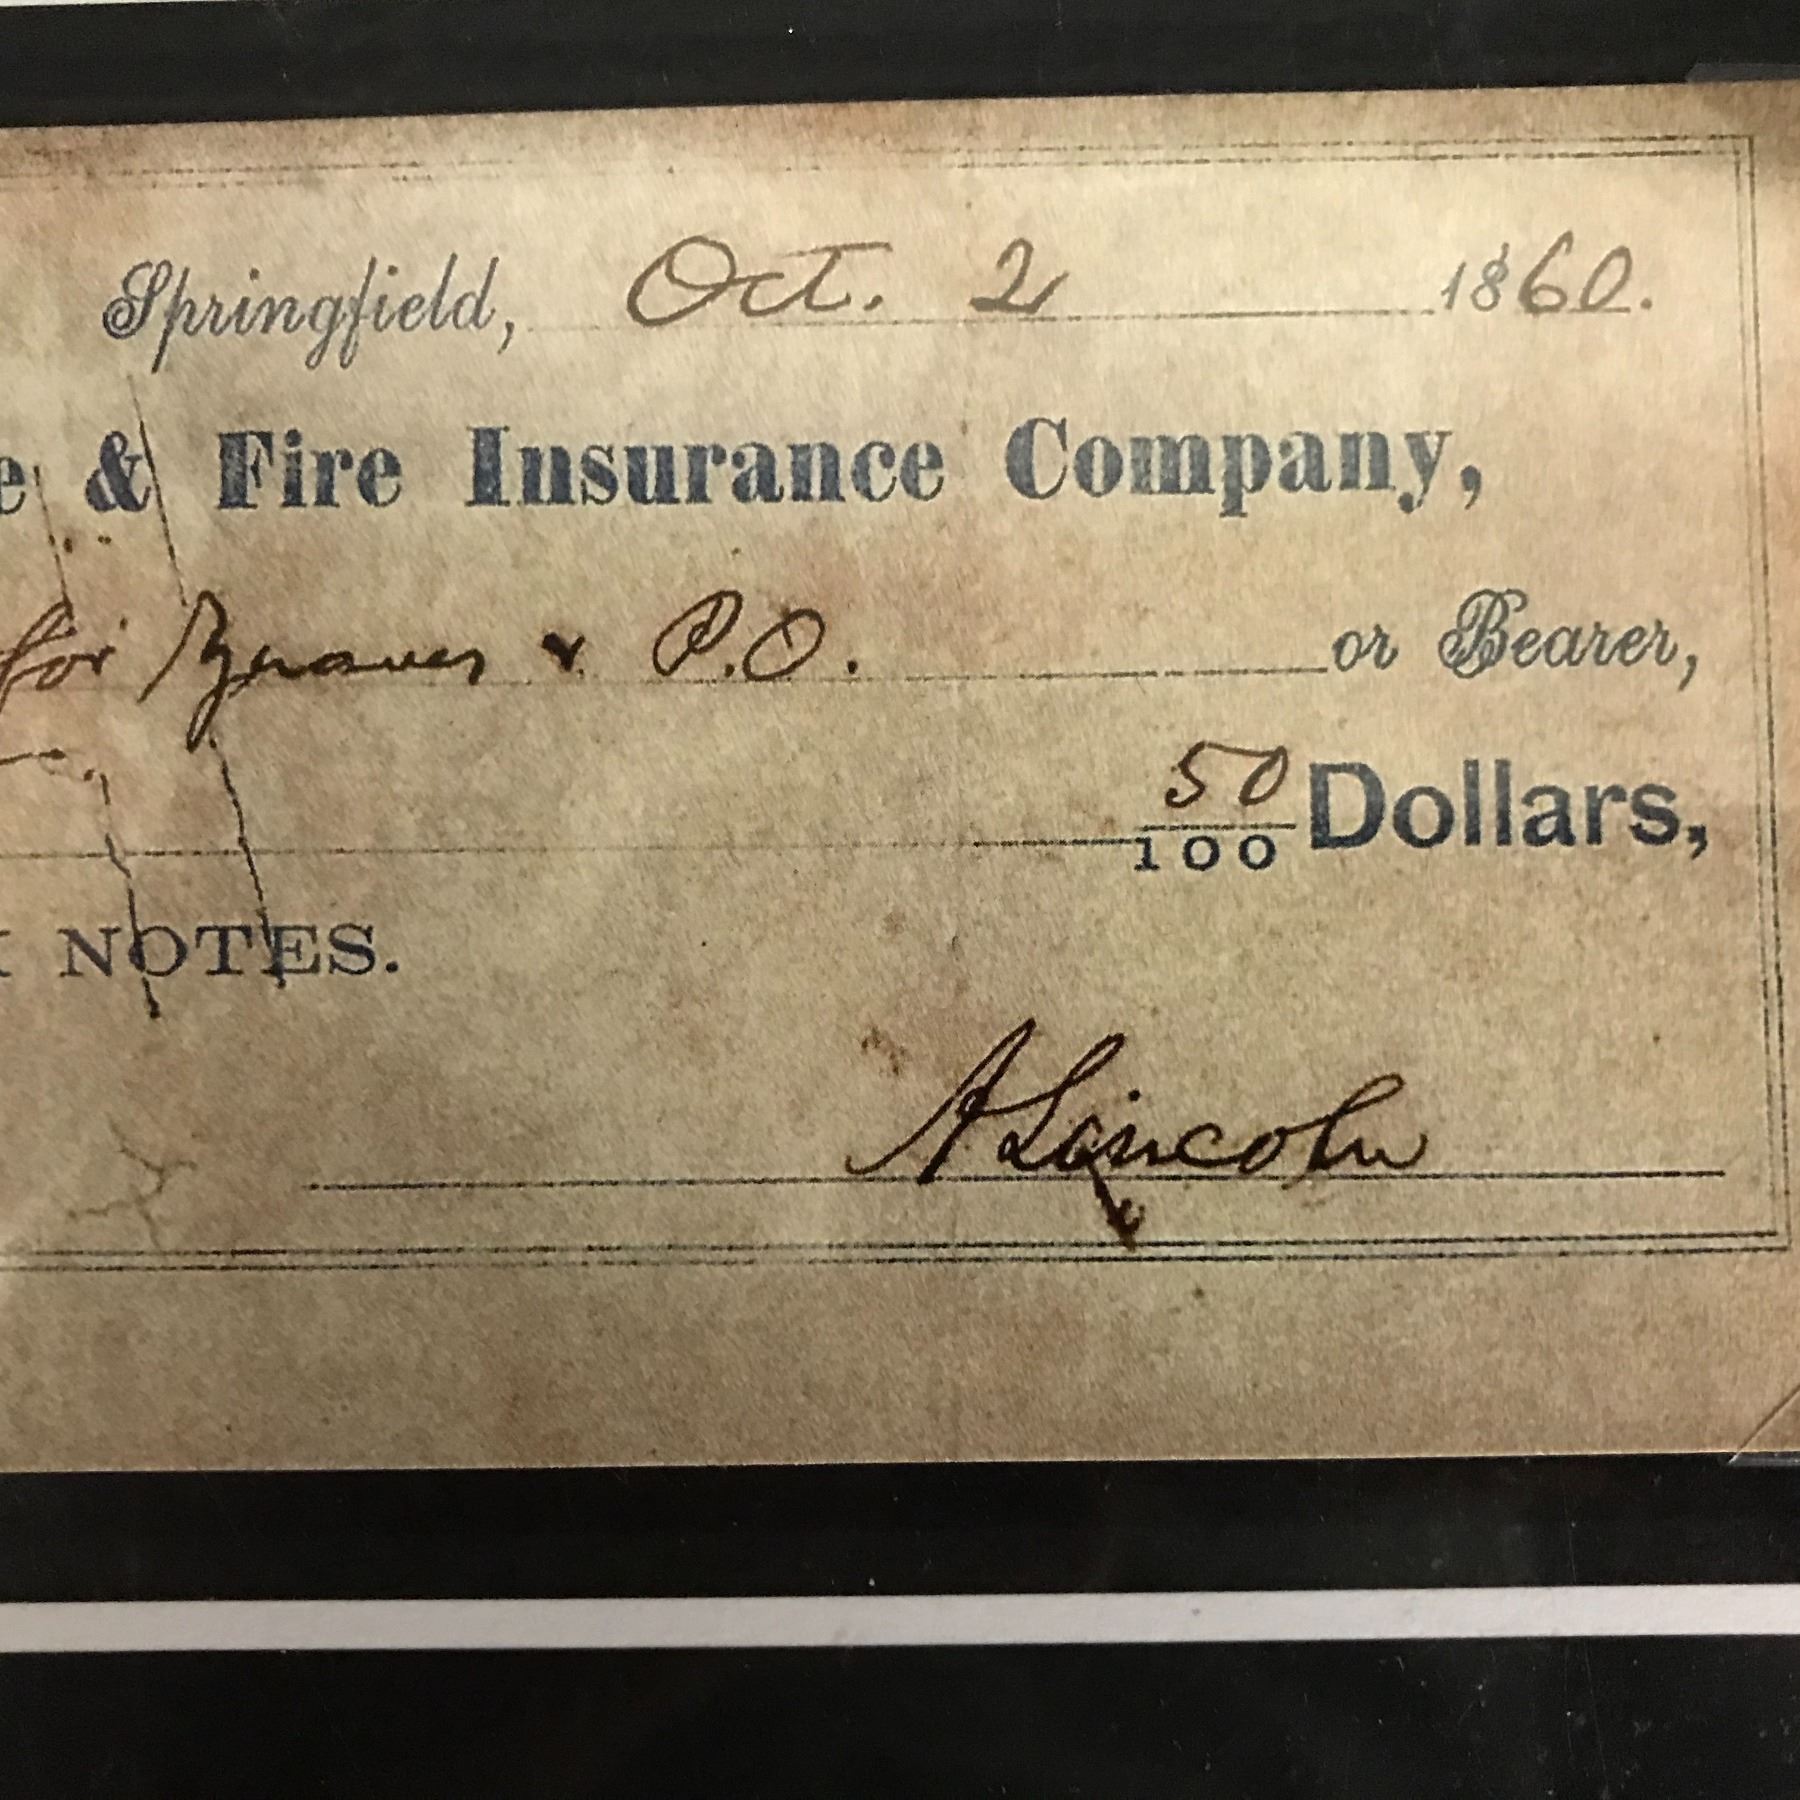 Springfield, Oct. 2 1860.
e & Fire Insurance Company,
for & P.O. or Bearer,
50/100 Dollars,
NOTES.
A Lincoln